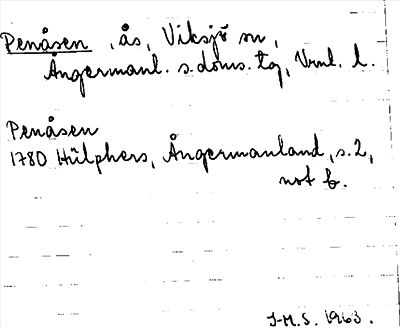 Penåsen, ås, Viksjö sn,
Ångermanl. s. doms. tg, Vnml. l.
Penåsen
1780 Hülphers, Ångermanland, s. 2,
not b.
J-M.S. 1963.